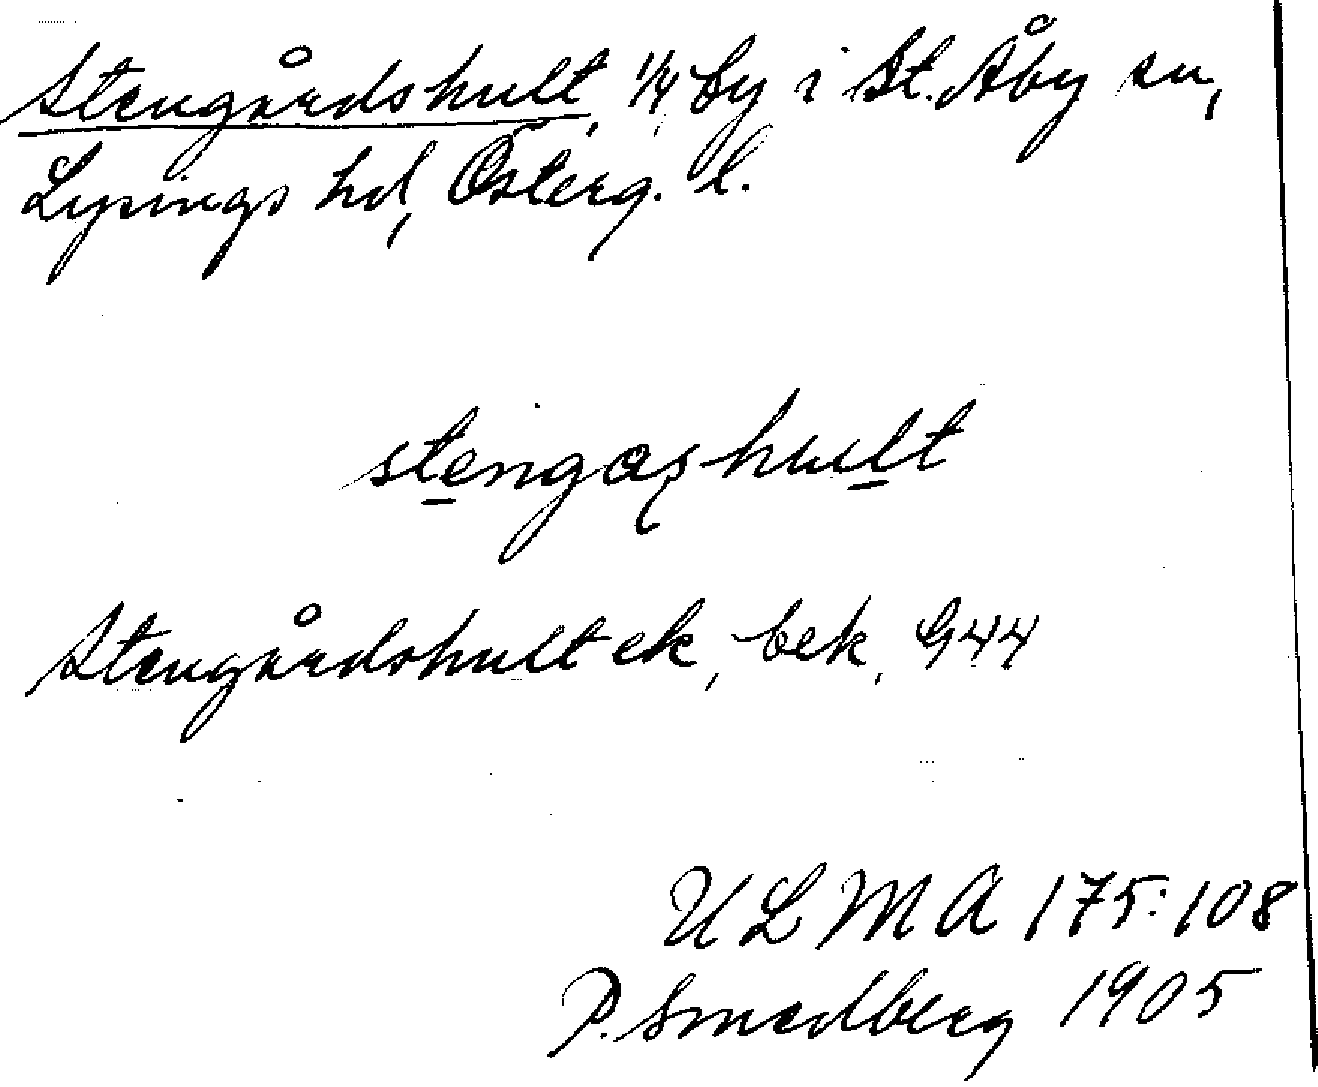 Stengårdshult, 1/4, by i St. Åby sn,
Lysings hd, Österg. l.
stengashult
Stengårdshult ek, bek, G44
ULMA 175:108
P. Smedberg 1905